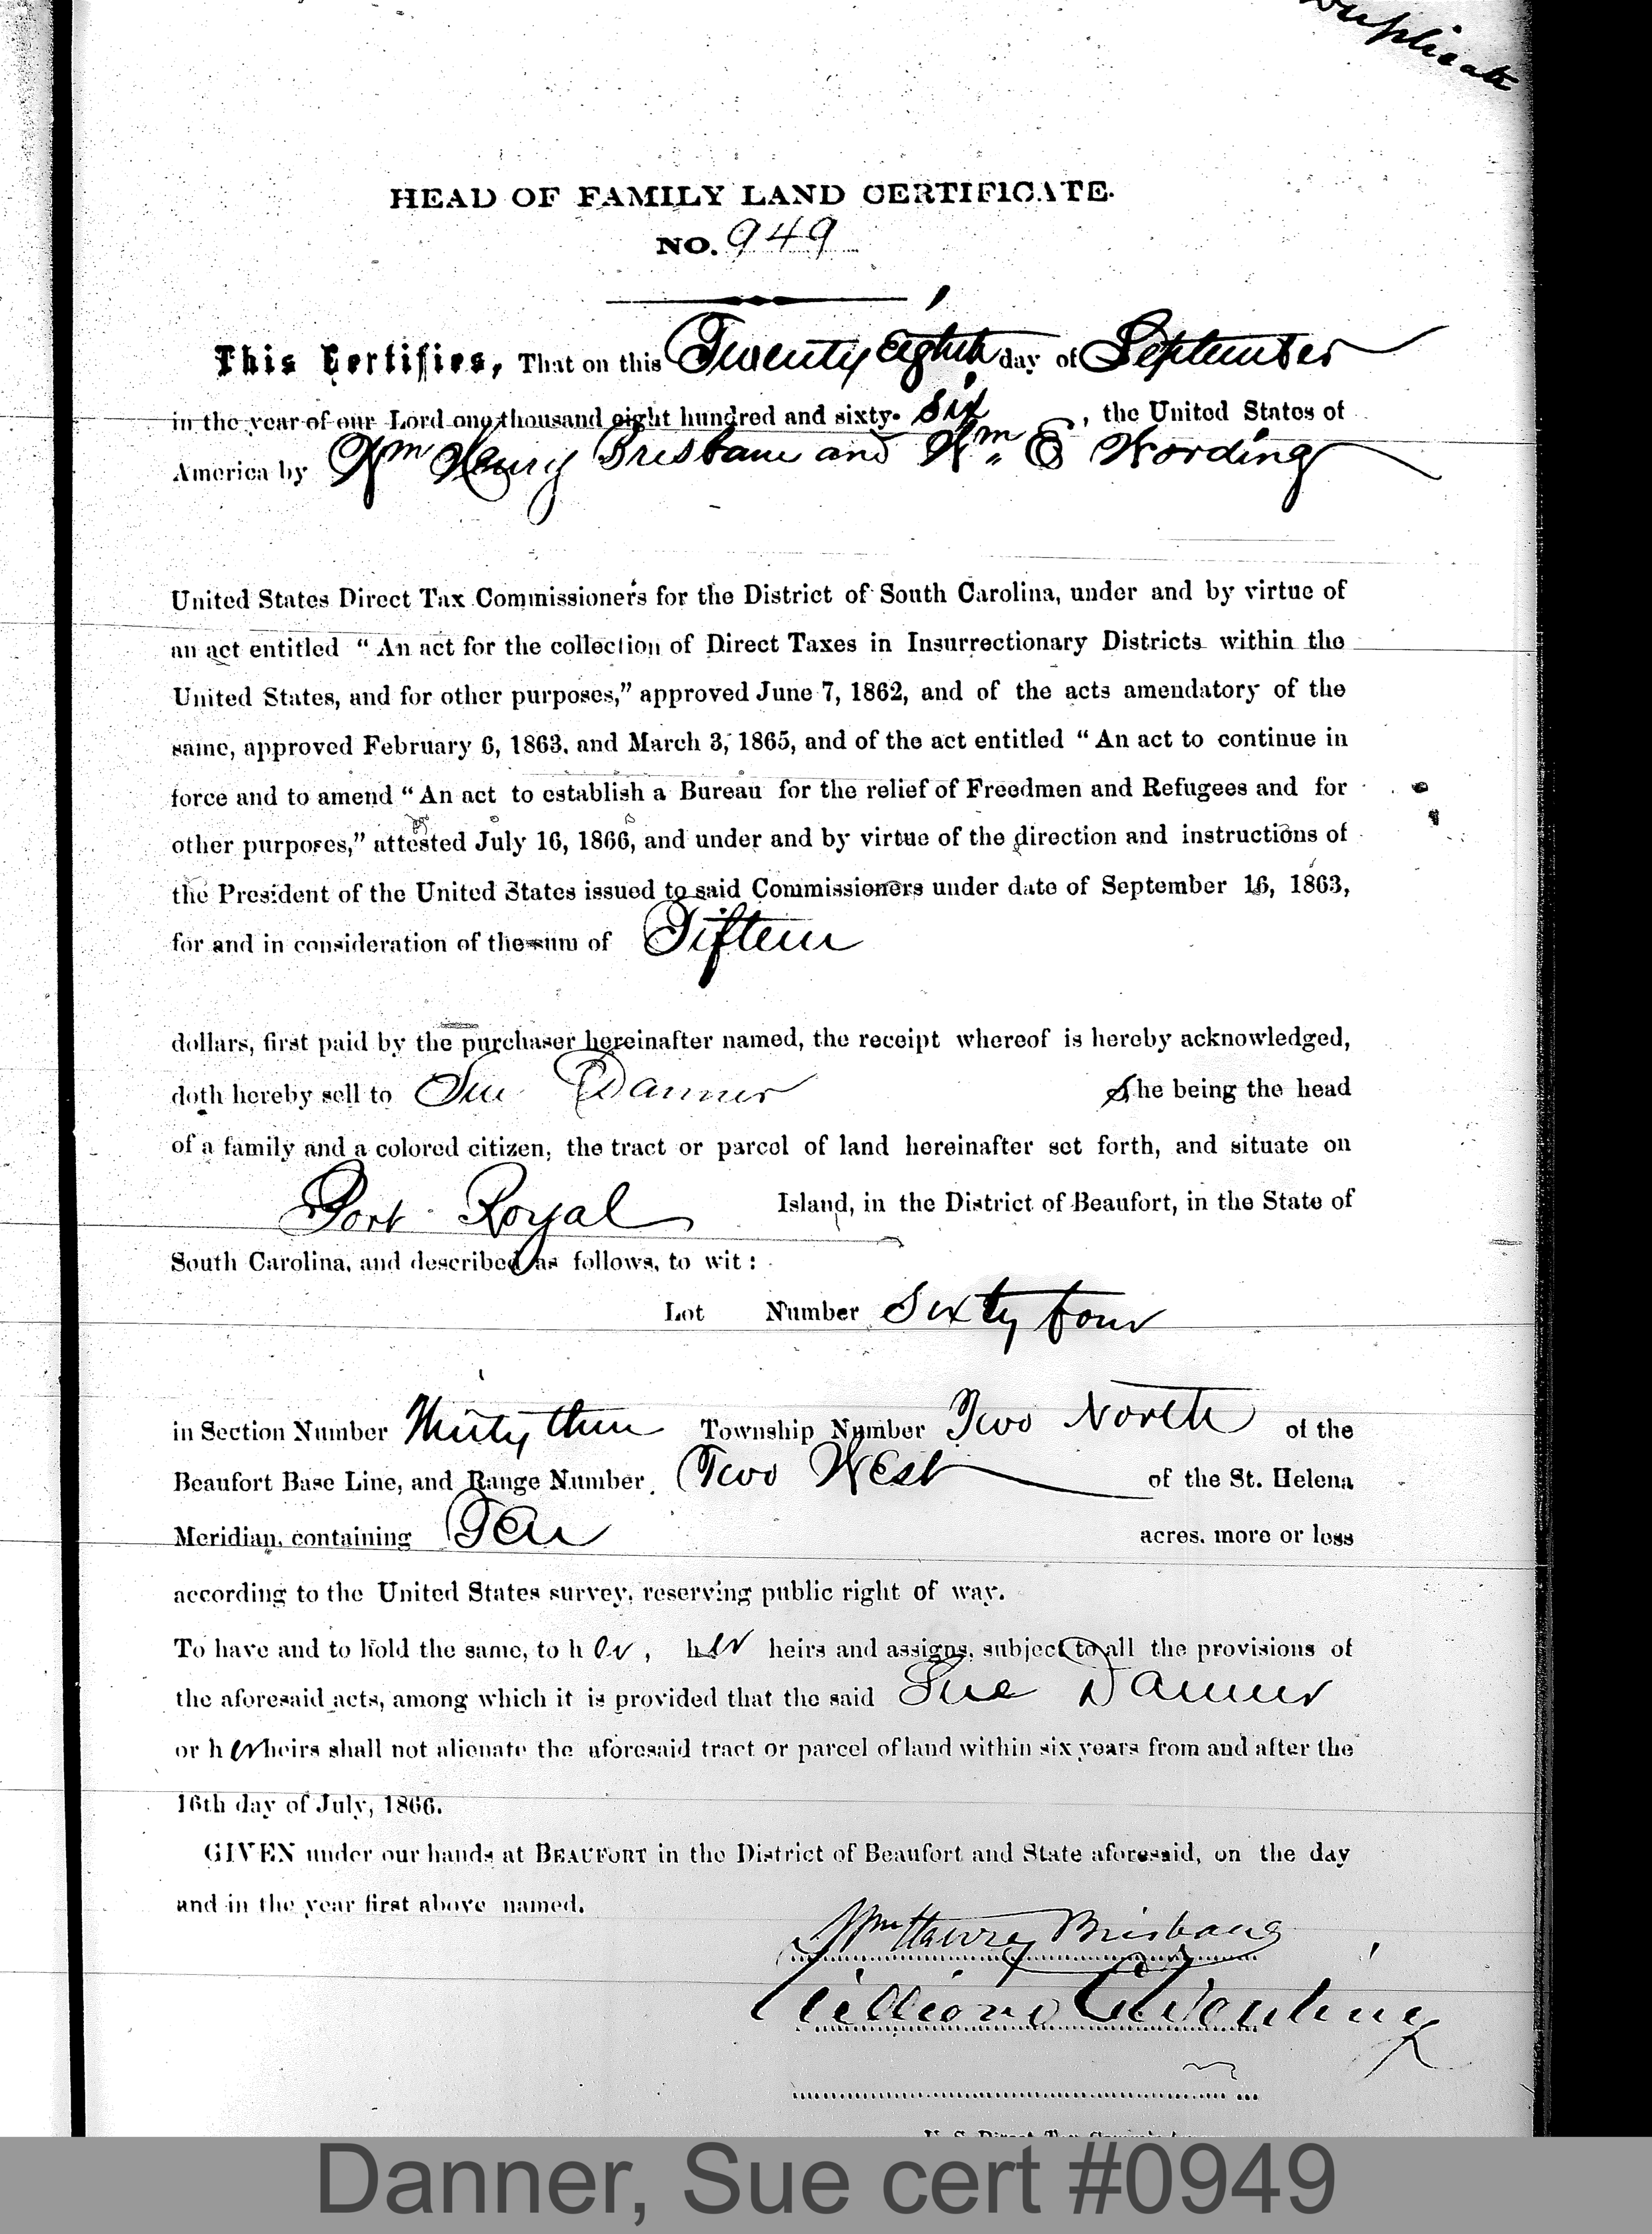 Duplicate
HEAD OF FAMILY LAND CERTIFICATE.
NO. 949
This Certifies, That on this Twenty Eighth day of September
in the year of our Lord one thousand eight hundred and sixty- Six, the United States of
America by Wm Henry Brisbane and Wm. E Wording
United States Direct Tax Commissioners for the District of South Carolina, under and by virtue of
an act entitled “An act for the collection of Direct Taxes in Insurrectionary Districts within the
United States, and for other purposes,” approved June 7, 1862, and of the acts amendatory of the
same, approved February 6, 1863, and March 3, 1865, and of the act entitled “An act to continue in
force and to amend “An act to establish a Bureau for the relief of Freedmen and Refugees and for
other purposes,” attested July 16, 1866, and under and by virtue of the direction and instructions of
the President of the United States issued to said Commissioners under date of September 16, 1863,
for and in consideration of the sum of Fifteen
dollars, first paid by the purchaser hereinafter named, the receipt whereof is hereby acknowledged,
doth hereby sell to Sue Danner She being the head
of a family and a colored citizen, the tract or parcel of land hereinafter set forth, and situate on
Port Royal Island, in the District of Beaufort, in the State of
South Carolina, and described as follows, to wit:
Lot Number Sixty four
in Section Number Thirty three Township Number Two North of the
Beaufort Base Line, and Range Number Two West of the St. Helena
Meridian, containing Ten acres, more or less
according to the United States survey, reserving public right of way.
To have and to hold the same, to her, her heirs and assigns, subject to all the provisions of
the aforesaid acts, among which it is provided that the said Sue Danner
or her heirs shall not alienate the aforesaid tract or parcel of land within six years from and after the
16th day of July, 1866.
GIVEN under our hands at BEAUFORT in the District of Beaufort and State aforesaid, on the day
and in the year first above named.
Wm Henry Brisbane
William E Wording
Danner, Sue cert #0949